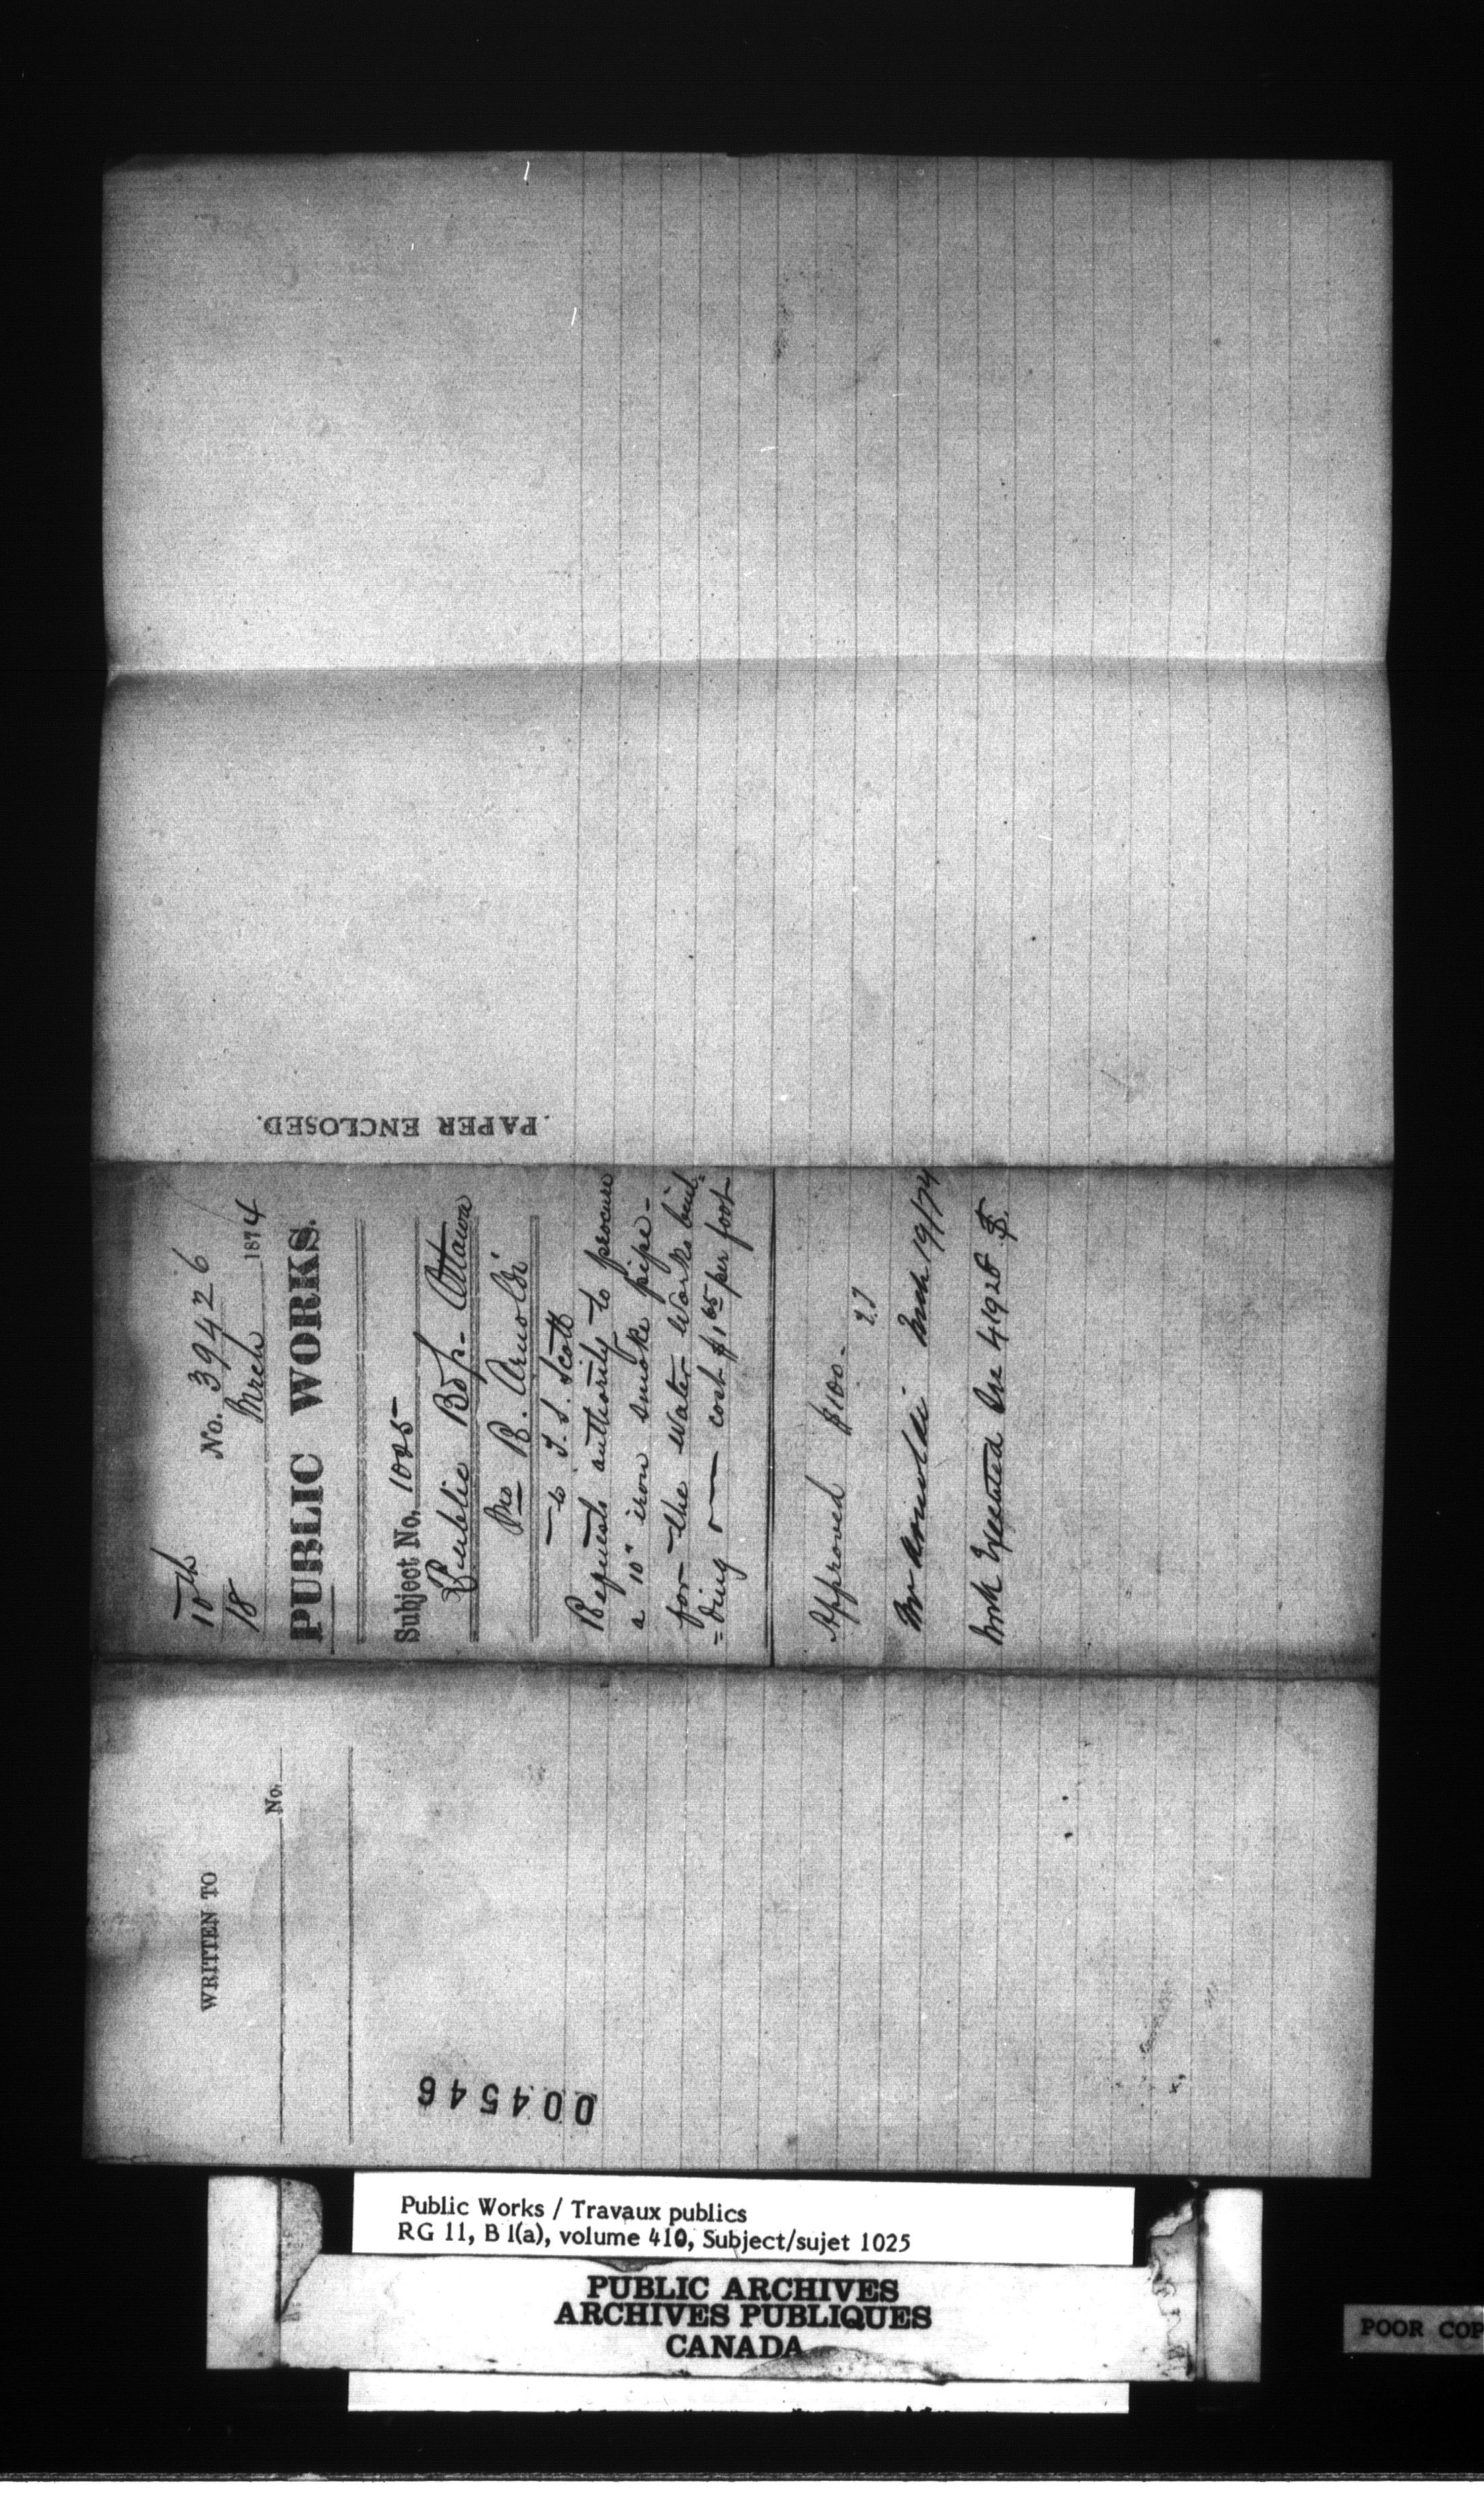 No. 39426
10th
18 Mrch 1874
PUBLIC WORKS.
Subject No. 1025
Public Bdgs. Ottawa
Mr B. Arnoldi
to T. S. Scott
Requests authority to procure
a 10" iron smoke pipe
for the Water Works buil-
=ding — cost $1.65 per foot
Approved $100-
Mr Arnoldi Mch 19/74
Work Executed See 41928
PAPER ENCLOSED.
WRITTEN TO
No.
004546
Public Works / Travaux publics
RG 11, B 1(a), volume 410, Subject/sujet 1025
PUBLIC ARCHIVES
ARCHIVES PUBLIQUES
CANADA
POOR COP